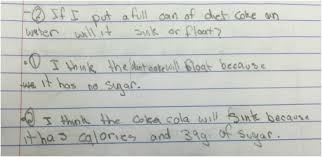 -② If I put a full can of diet coke on
water will it sink or float?
·① I think the diet coke will float because
it has no sugar.
② I think the coka cola will sink because
it has calories and 39g of sugar.